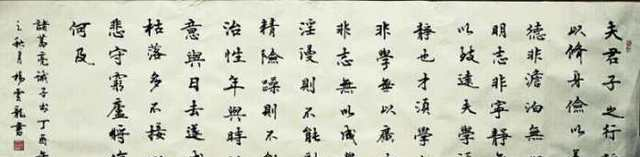 夫君子之行
以脩身儉以
德非澹泊無
明志非寧靜
以致遠夫學
靜也才湏學
非學無以廣
非志無以成
淫漫則不能
精險躁則不
治性年與時
意與日去遂
枯落多不接
悲守窮廬將
何及
諸葛亮誡子书丁酉年
之秋月楊雲龍書